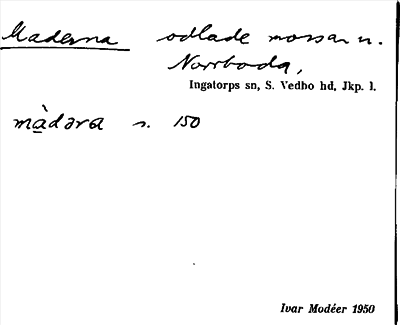 Maderna odlade mossar n.
Norrboda,
Ingatorps sn, S. Vedbo hd, Jkp. l.
màdəra s. 150
Ivar Modéer 1950